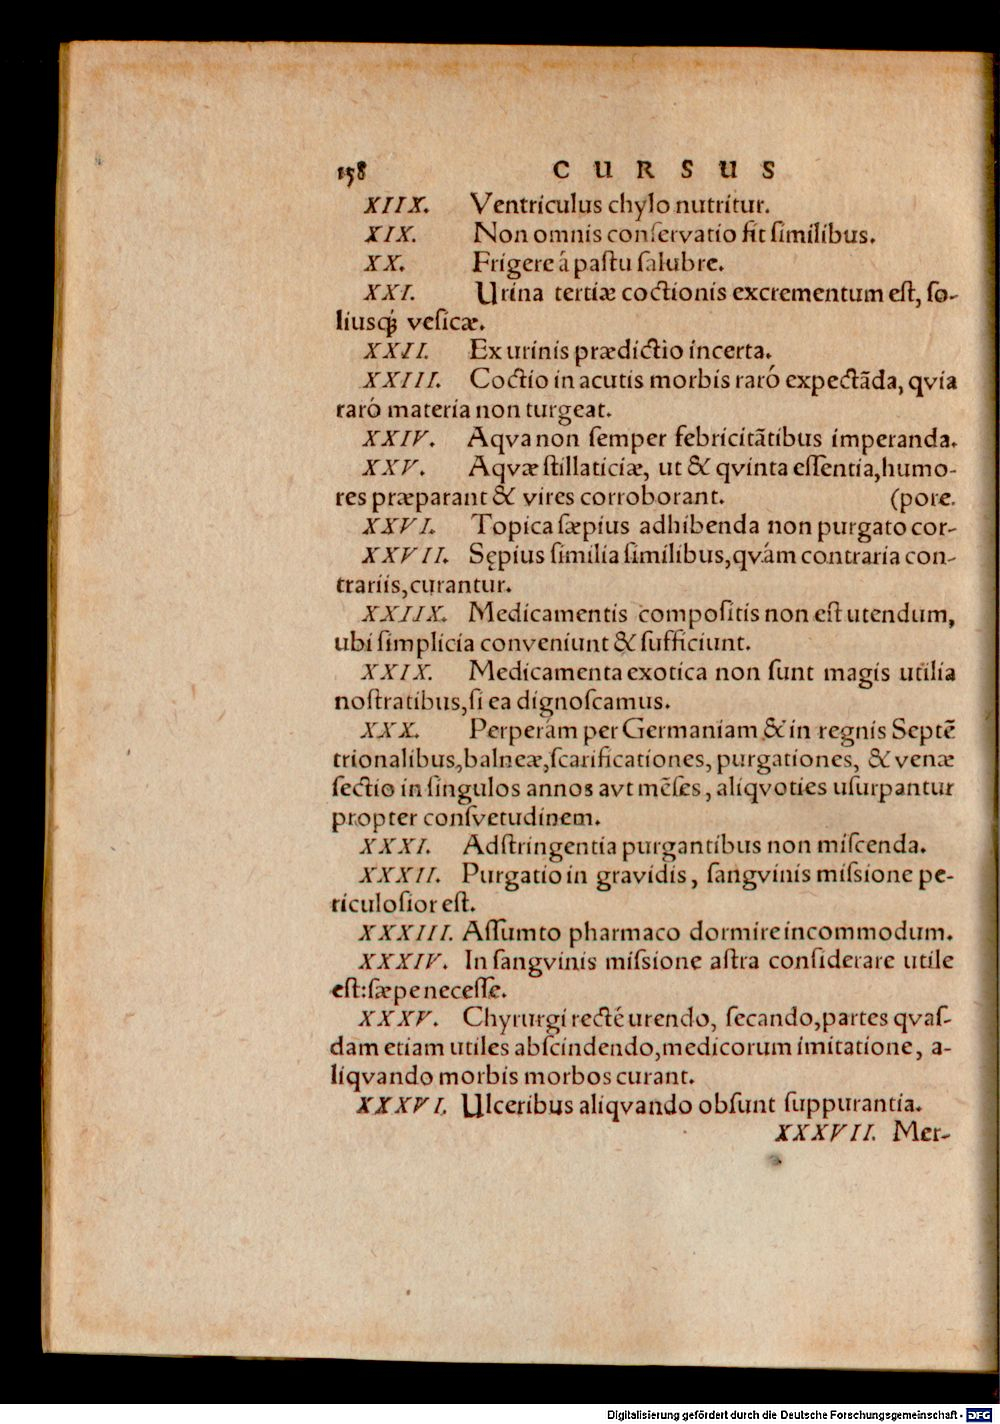 158 CURSUS
XIIX. Ventriculus chylo nutritur.
XIX. Non omnis conſervatio fit ſimilibus.
XX. Frigere á paſtu ſalubre.
XXI. Urina tertiæ coctionis excrementum eſt, ſo-
liusq́; veſicæ.
XXII. Ex urinis prædictio incerta.
XXIII. Coctio in acutis morbis raró expectãda, qvia
raró materia non turgeat.
XXIV. Aqva non ſemper febricitãtibus imperanda.
XXV. Aqvæ ſtillaticiæ, ut & qvinta eſſentia, humo-
res præparant & vires corroborant. (pore.
XXVI. Topica ſæpius adhibenda non purgato cor-
XXVII. Sępius ſimilia ſimilibus, qvám contraria con-
trariis, curantur.
XXIIX. Medicamentis compoſitis non eſt utendum,
ubi ſimplicia conveniunt & ſufficiunt.
XXIX. Medicamenta exotica non ſunt magis utilia
noſtratibus, ſi ea dignoſcamus.
XXX. Perperám per Germaniam & in regnis Septẽ
trionalibus, balneæ, ſcarificationes, purgationes, & venæ
ſectio in ſingulos annos avt mẽſes, aliqvoties uſurpantur
propter conſvetudinem.
XXXI. Adſtringentia purgantibus non miſcenda.
XXXII. Purgatio in gravidis, ſangvinis miſsione pe-
riculoſior eſt.
XXXIII. Aſſumto pharmaco dormire incommodum.
XXXIV. In ſangvinis miſsione aſtra conſiderare utile
eſt: ſæpe neceſſe.
XXXV. Chyrurgi recté urendo, ſecando, partes qvaſ-
dam etiam utiles abſcindendo, medicorum imitatione, a-
liqvando morbis morbos curant.
XXXVI. Ulceribus aliqvando obſunt ſuppurantia.
XXXVII. Mer-
Digitalisierung gefördert durch die Deutsche Forschungsgemeinschaft - DFG